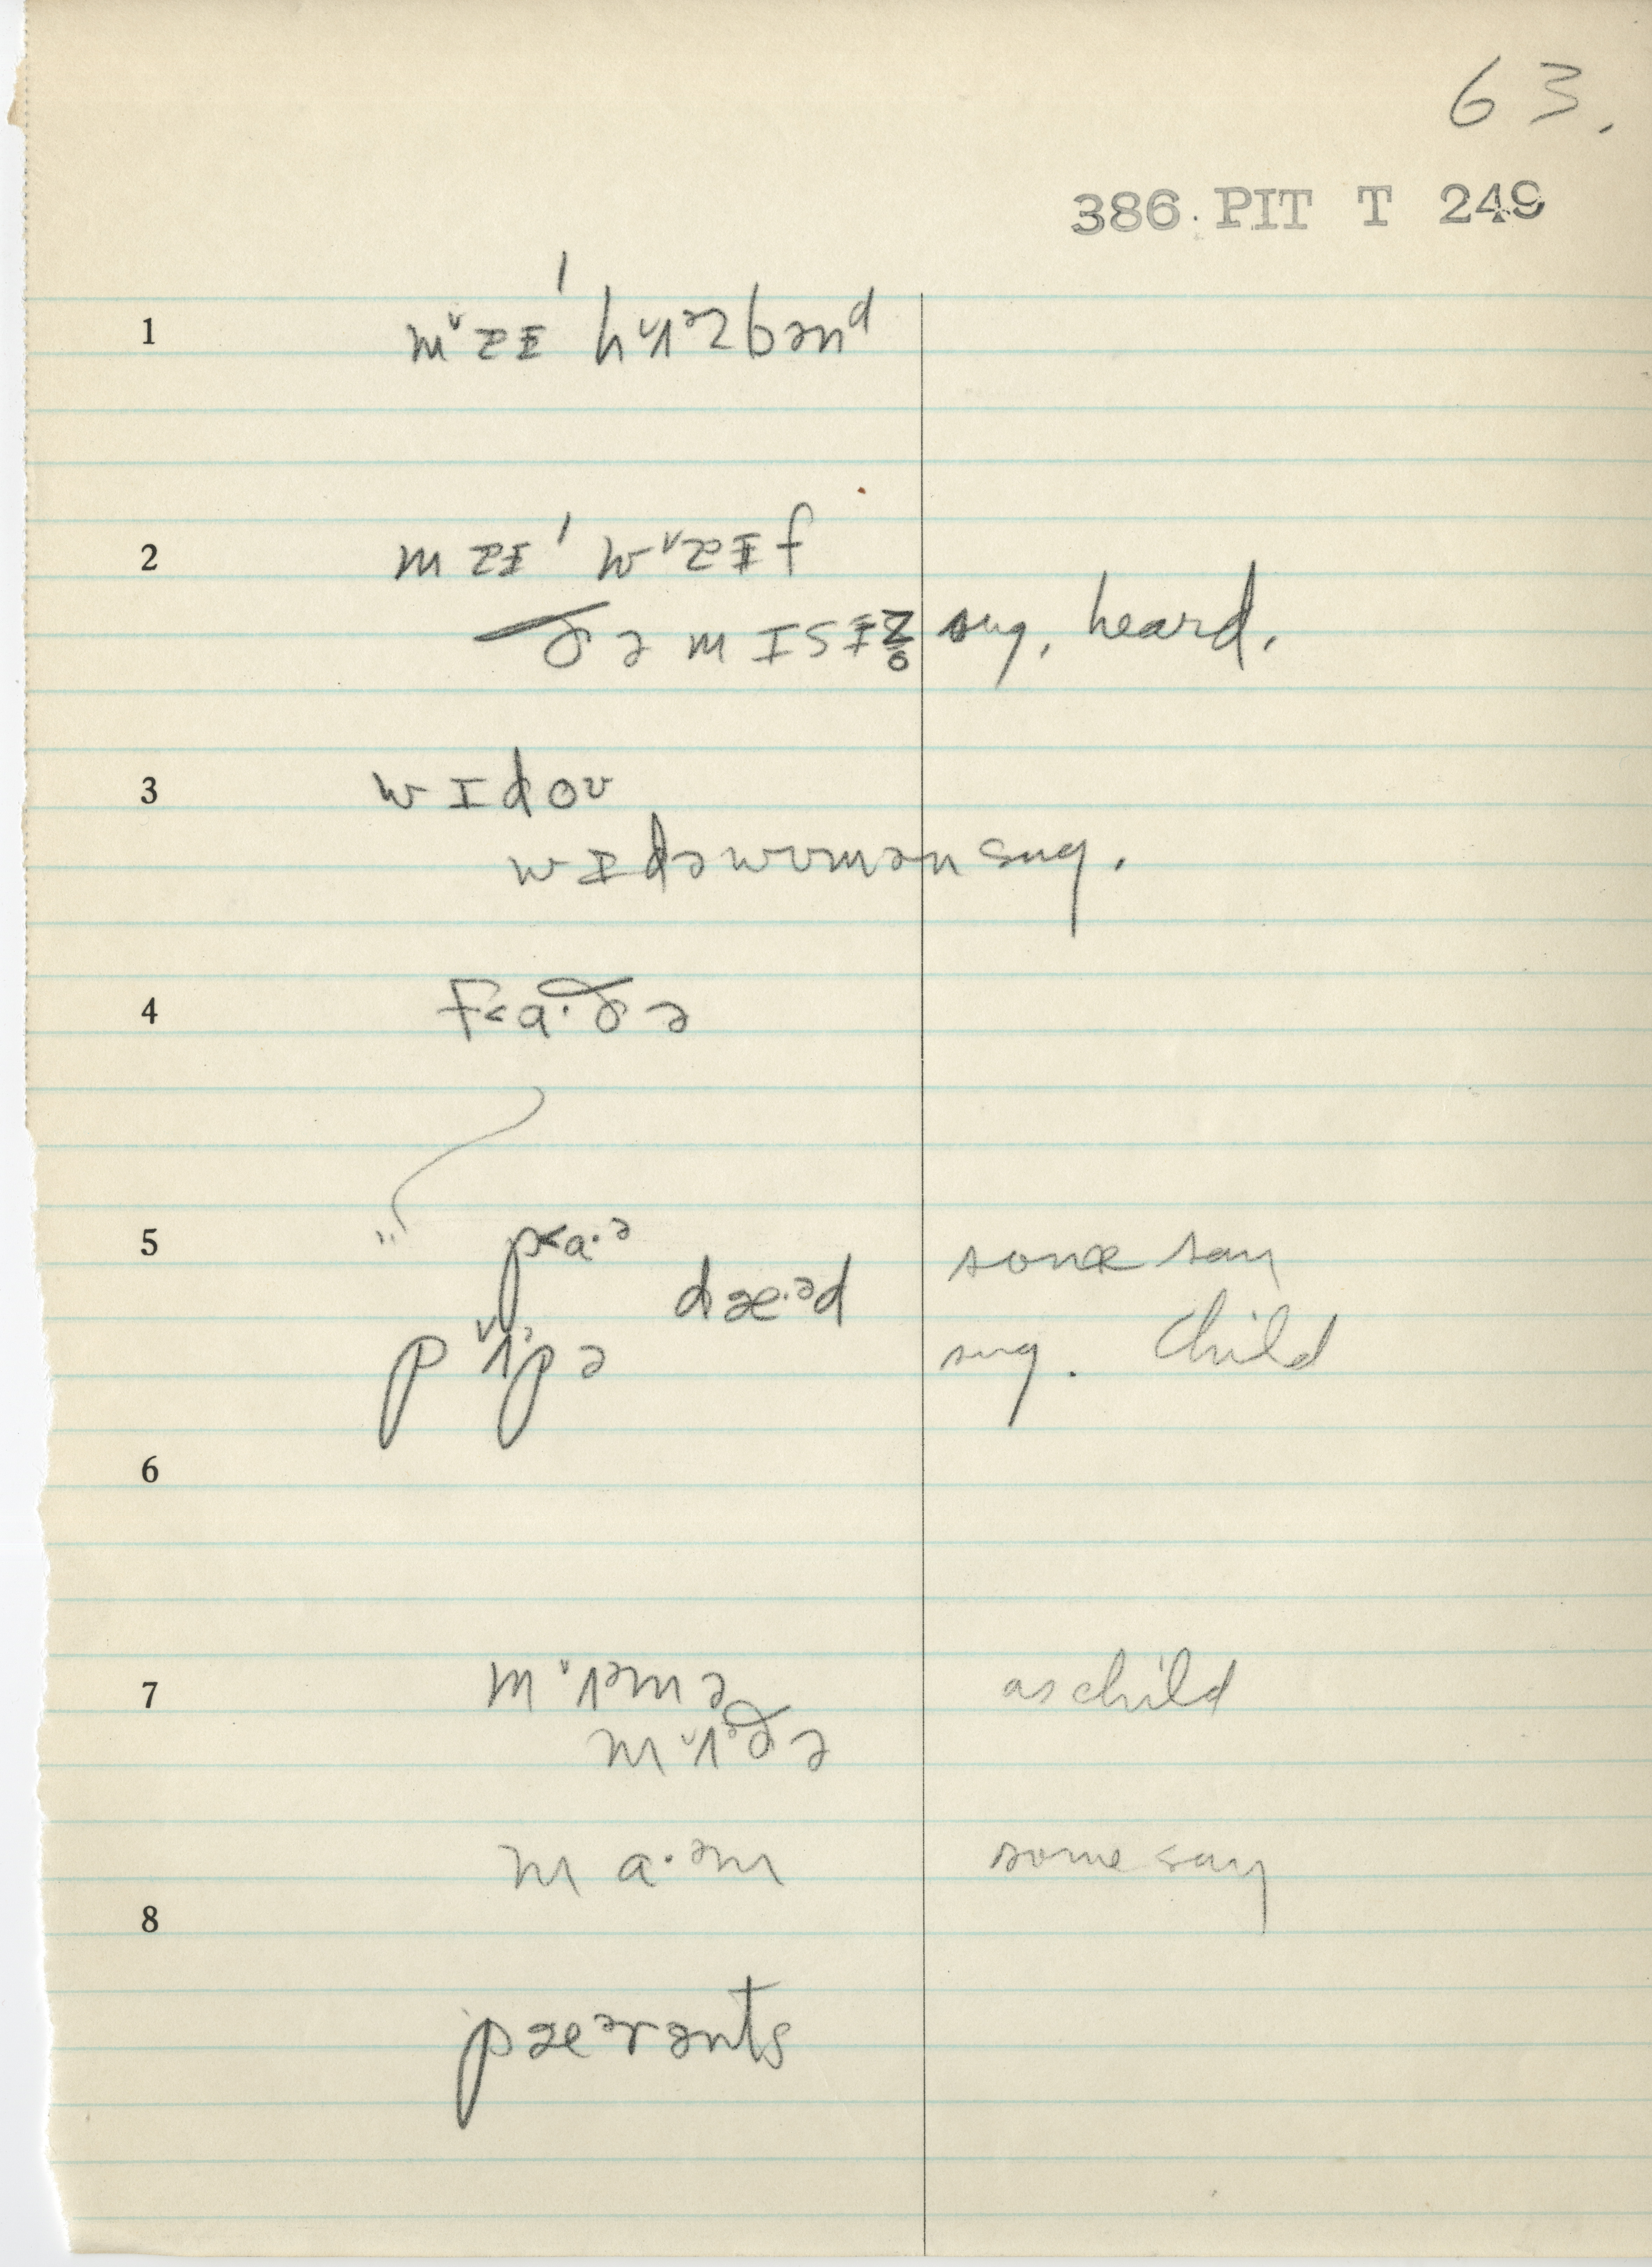 63.
386 PIT T 249
1 m ̌ɐɪ ˈhʌᵊsbənᵈ
2 mɐɪ ˈwɐɪf
ðə mɪsɪz̥ sug. heard.
3 wɪdoʊ
wɪdəwʊmən sug.
4 f˂a·ðə
5 p˂a·ᵊ some say
dæ·ᵊd
pʌᵊpə sug. child
6
7 mʌᵊmə as child
mʌᵊðə
ma·ᵊm some say
8
pæᵊrənts